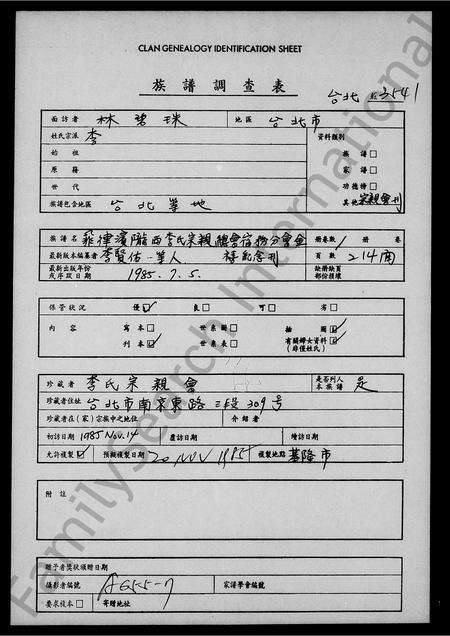 CLAN GENEALOGY IDENTIFICATION SHEET
族譜調查表
台北 3541
面訪者 林碧珠 地區 台北市
姓氏宗派 李 資料類別
始祖 族譜□
原籍 家譜□
世代 功德榜□
族譜包含地區 台北等地 其他 宗親會刊
族譜名 菲律濱隴西李氏宗親總會宿務分會金 冊卷數 1 冊 卷
最新版本編纂者 李賢佑 禧紀念刊 頁數 214頁
最新出版年份或序跋日期 1985.7.5. 缺冊缺頁部份損壞
保管狀況 優☑ 良□ 可□ 劣□
內容 寫本□ 世系圖□ 插圖☑
刊本☑ 世系表□ 有關婦女資料(非僅姓氏)☑
珍藏者 李氏宗親會 是否列入本族譜 是
珍藏者住址 台北市南京東路三段309号
珍藏者在(家)宗族中之地位 介紹者
初訪日期 1985 Nov. 14 覆訪日期 續訪日期
允許複製☑ 預擬複製日期 20, NOV 1985 複製地點 基隆市
附註
贈予者獎狀頒贈日期
攝影者編號 A655-7 家譜學會編號
要求複本□ 寄贈地址
FamilySearch International